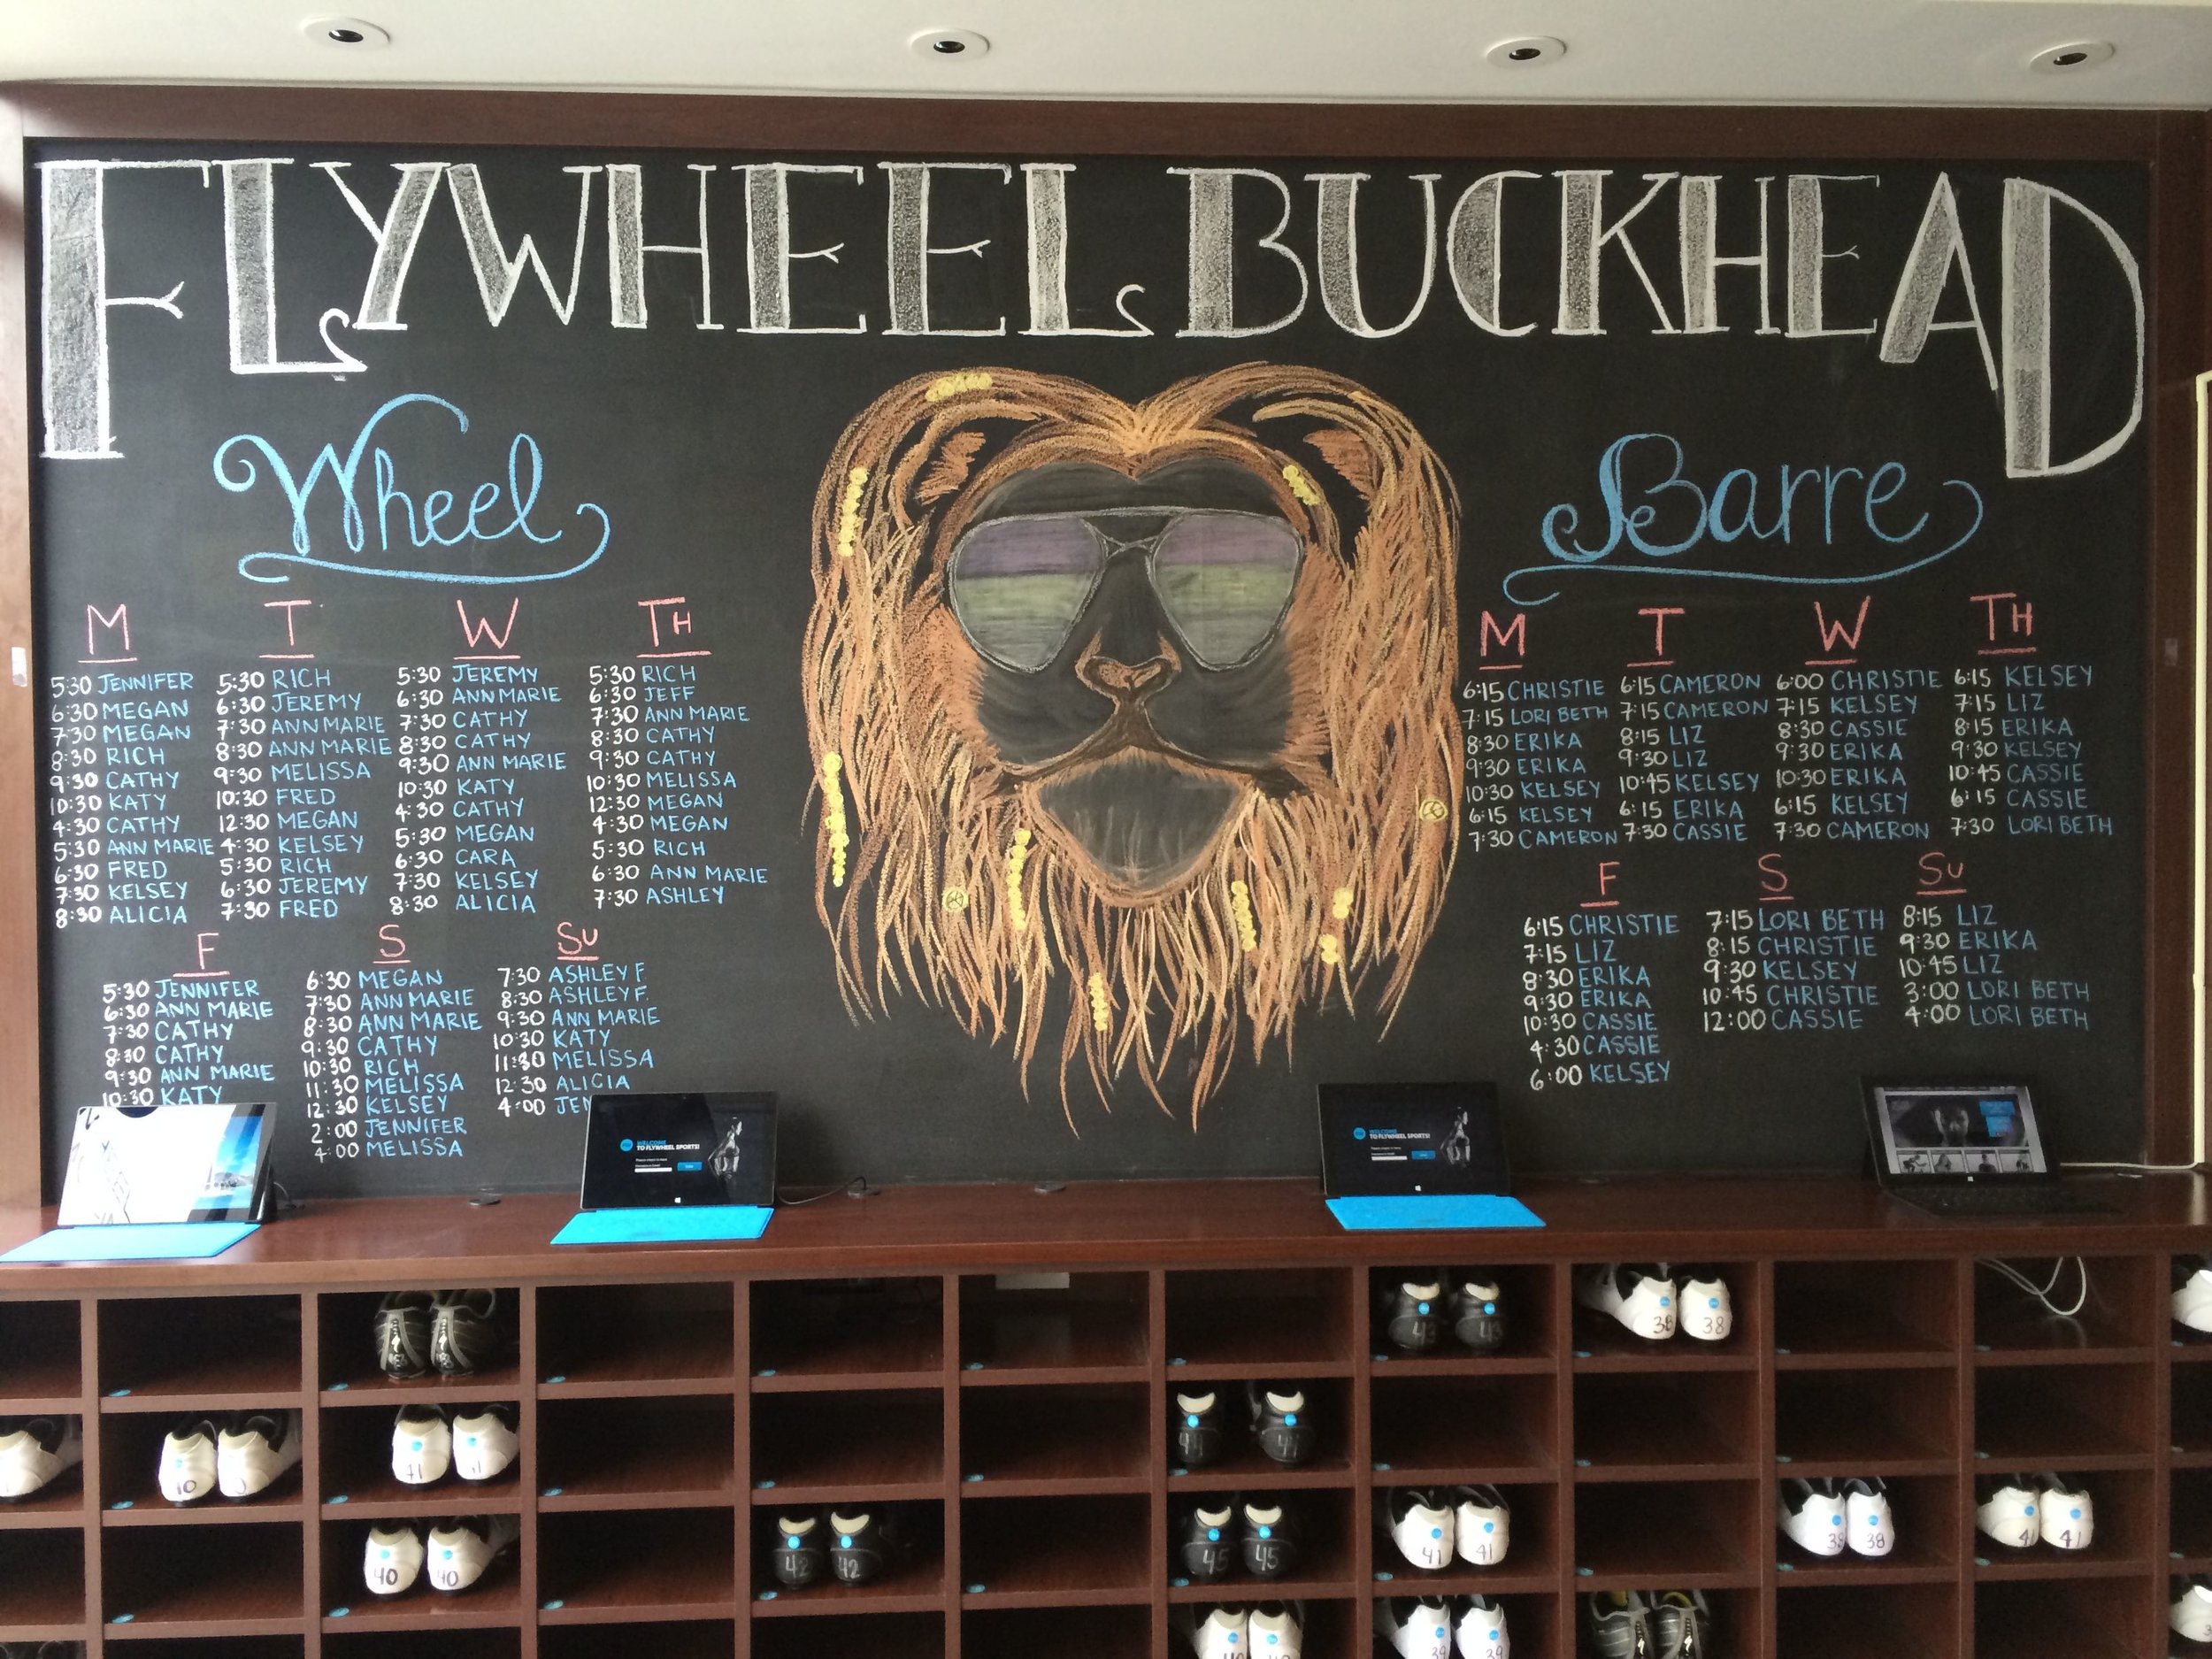 FLYWHEEL BUCKHEAD
Wheel
M
5:30 JENNIFER
6:30 MEGAN
7:30 MEGAN
8:30 RICH
9:30 CATHY
10:30 KATY
4:30 CATHY
5:30 ANN MARIE
6:30 FRED
7:30 KELSEY
8:30 ALICIA
T
5:30 RICH
6:30 JEREMY
7:30 ANN MARIE
8:30 ANN MARIE
9:30 MELISSA
10:30 FRED
12:30 MEGAN
4:30 KELSEY
5:30 RICH
6:30 JEREMY
7:30 FRED
W
5:30 JEREMY
6:30 ANN MARIE
7:30 CATHY
8:30 CATHY
9:30 ANN MARIE
10:30 KATY
4:30 CATHY
5:30 MEGAN
6:30 CARA
7:30 KELSEY
8:30 ALICIA
TH
5:30 RICH
6:30 JEFF
7:30 ANN MARIE
8:30 CATHY
9:30 CATHY
10:30 MELISSA
12:30 MEGAN
4:30 MEGAN
5:30 RICH
6:30 ANN MARIE
7:30 ASHLEY
F
5:30 JENNIFER
6:30 ANN MARIE
7:30 CATHY
8:30 CATHY
9:30 ANN MARIE
10:30 KATY
S
6:30 MEGAN
7:30 ANN MARIE
8:30 ANN MARIE
9:30 CATHY
10:30 RICH
11:30 MELISSA
12:30 KELSEY
2:00 JENNIFER
4:00 MELISSA
SU
7:30 ASHLEY F.
8:30 ASHLEY F.
9:30 ANN MARIE
10:30 KATY
11:30 MELISSA
12:30 ALICIA
4:00 JEN
Barre
M
6:15 CHRISTIE
7:15 LORI BETH
8:30 ERIKA
9:30 ERIKA
10:30 KELSEY
6:15 KELSEY
7:30 CAMERON
T
6:15 CAMERON
7:15 CAMERON
8:15 LIZ
9:30 LIZ
10:45 KELSEY
6:15 ERIKA
7:30 CASSIE
W
6:00 CHRISTIE
7:15 KELSEY
8:30 CASSIE
9:30 ERIKA
10:30 ERIKA
6:15 KELSEY
7:30 CAMERON
TH
6:15 KELSEY
7:15 LIZ
8:15 ERIKA
9:30 KELSEY
10:45 CASSIE
6:15 CASSIE
7:30 LORI BETH
F
6:15 CHRISTIE
7:15 LIZ
8:30 ERIKA
9:30 ERIKA
10:30 CASSIE
4:30 CASSIE
6:00 KELSEY
S
7:15 LORI BETH
8:15 CHRISTIE
9:30 KELSEY
10:45 CHRISTIE
12:00 CASSIE
SU
8:15 LIZ
9:30 ERIKA
10:45 LIZ
3:00 LORI BETH
4:00 LORI BETH
WELCOME
TO FLYWHEEL SPORTS!
WELCOME
TO FLYWHEEL SPORTS!
43 43
38 38
41 41
40 40
42 42
45 45
41 41
38
41 41
39 39